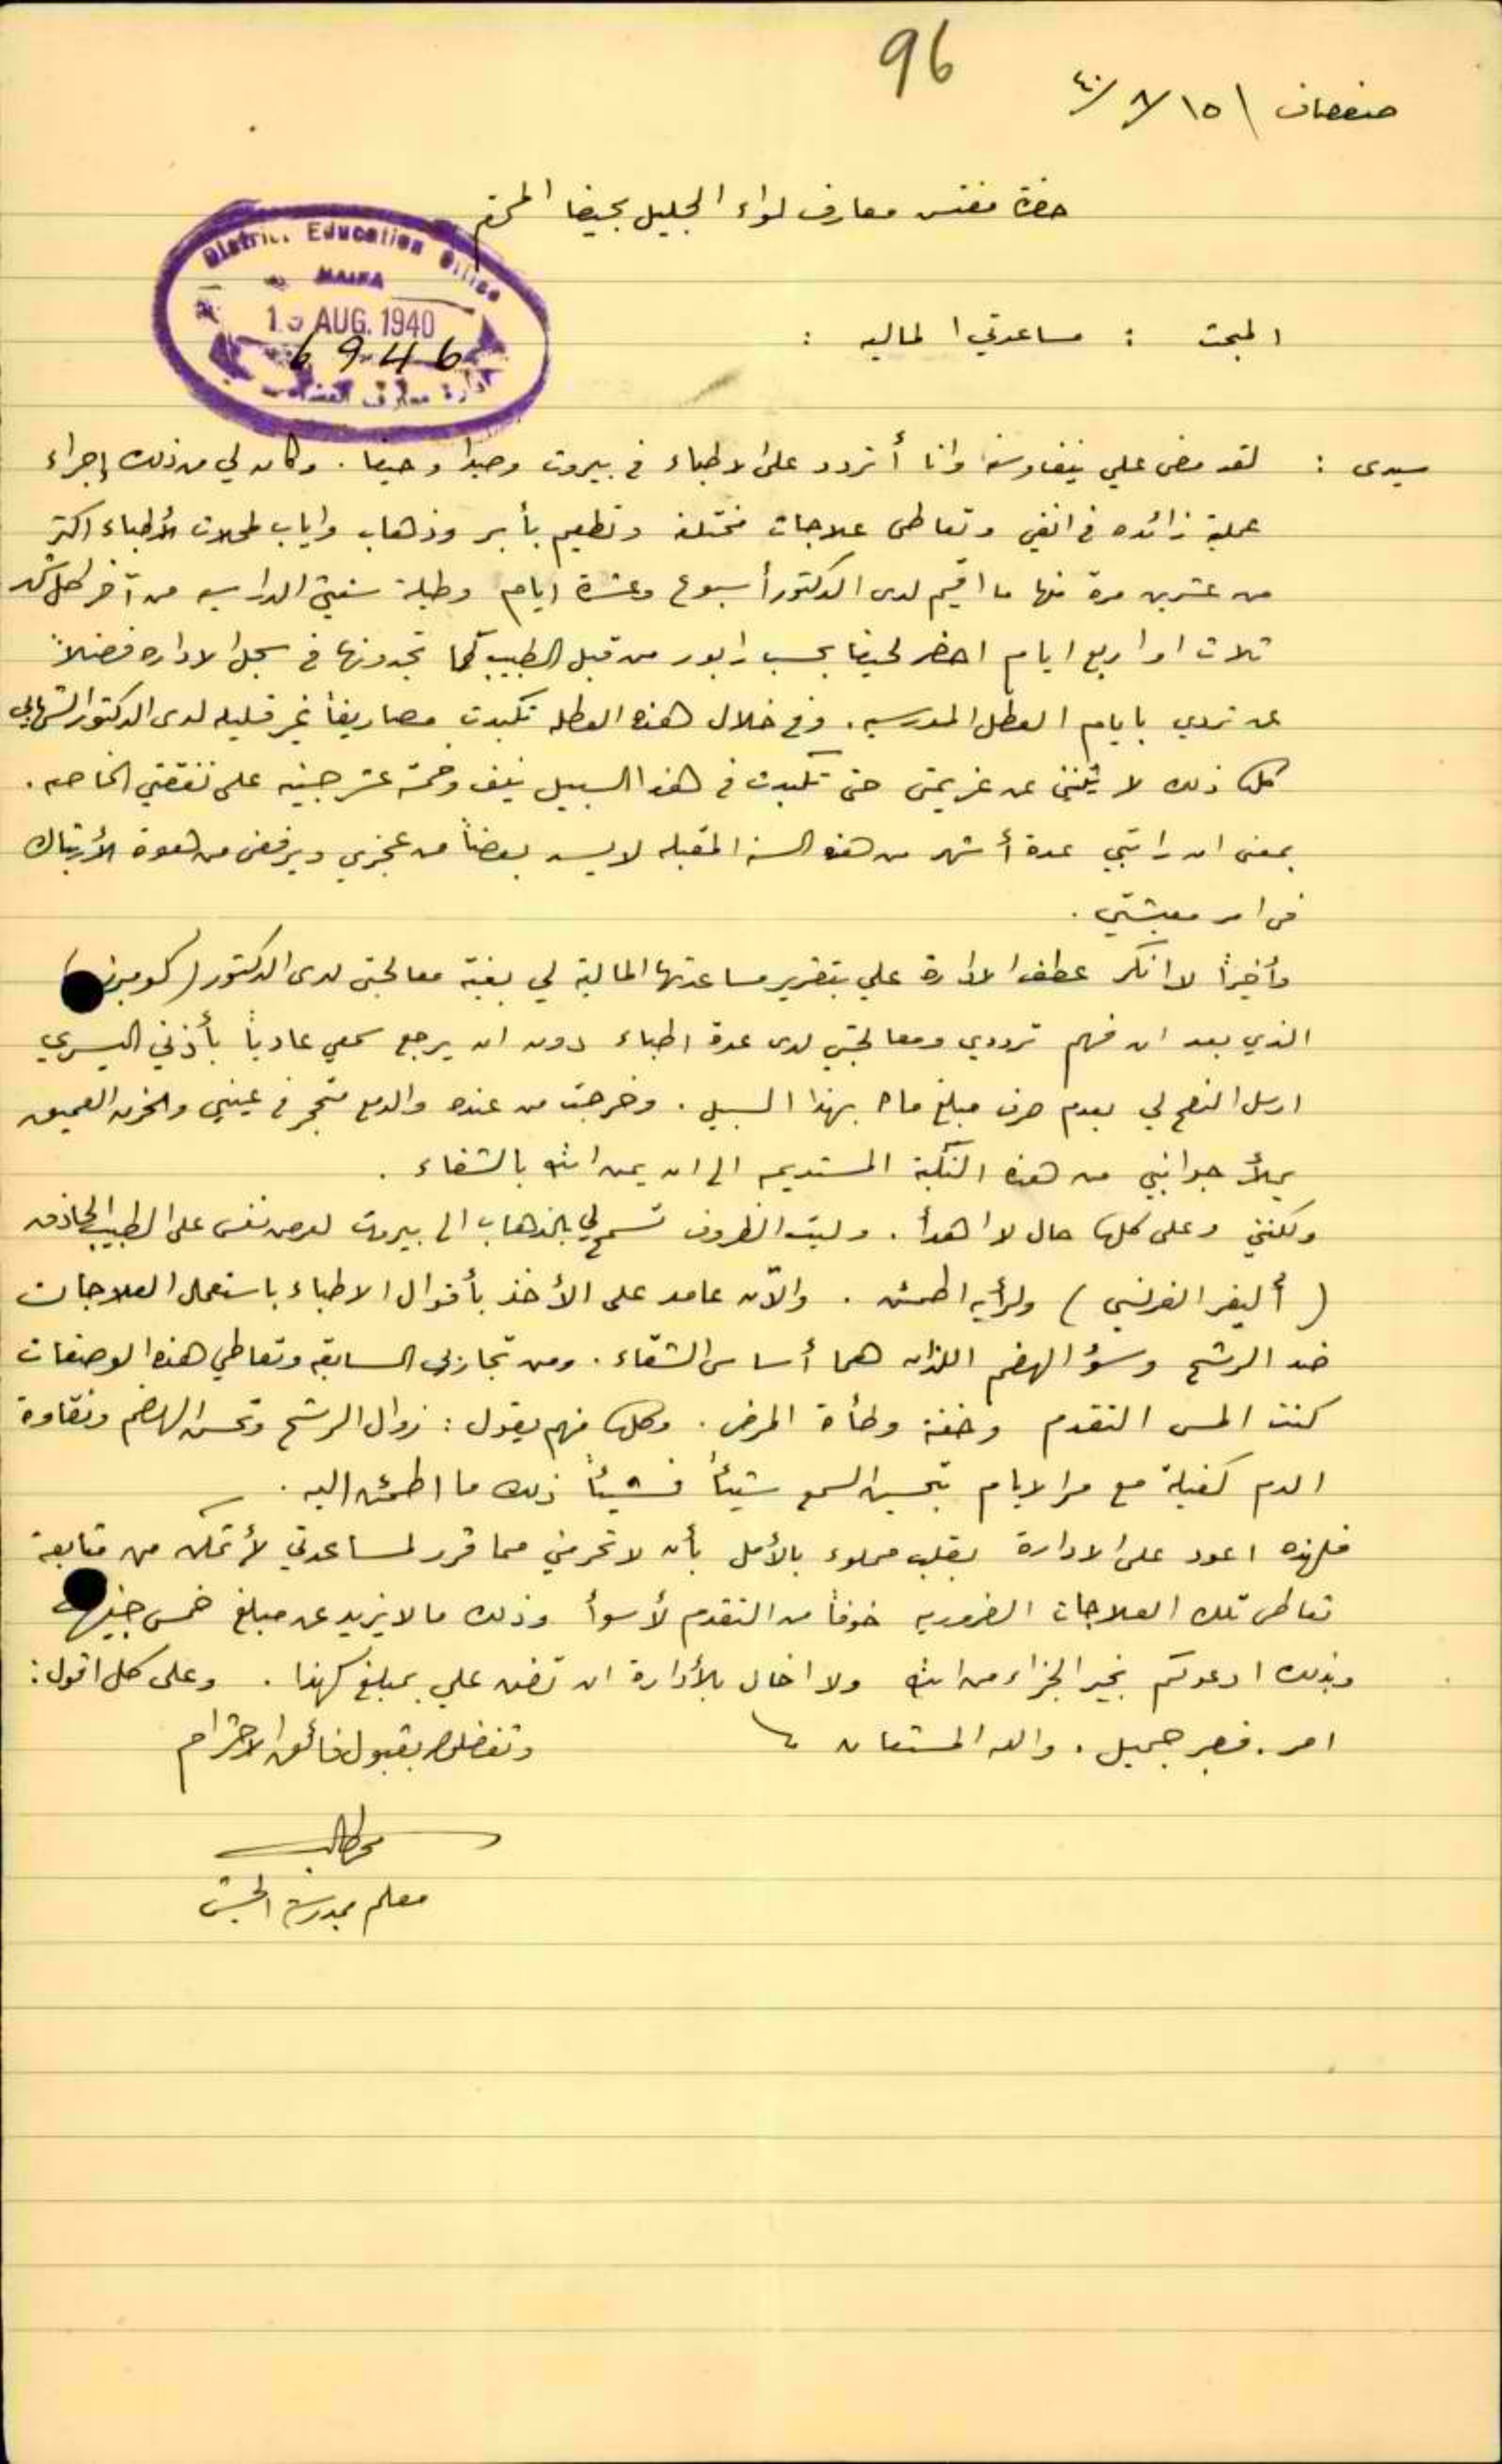 96
صفصاف \ ١٥/٨/٤٠
حضرة مفتش معارف لواء الجليل بحيفا المحترم
District Education Office
HAIFA
AUG. 1940
6946
ادارة معارف
المبحث : مساعدتي المالية :
سيدى : لقد مضى علي نيف وسنة وانا أتردد على الاطباء في بيروت وصيدا وحيفا . وكان لي من ذلك إجراء
عملية زائده في انفي وتعاطى علاجات مختلفة وتطعيم بأبر وذهاب واياب لمحلات الأطباء اكثر
من عشرين مرة منها ما اقيم لدى الدكتور أسبوع وعشرة ايام وطيلة سنتي الدراسيه من آخر كل شهر
ثلاث او اربع ايام احضر لحيفا بحسب رابور من قبل الطبيب كما تجدونها في سجل الاداره فضلاً
عن ترددي بايام العطل المدرسيه . وفي خلال هذه العطله تكبدت مصاريفاً غير قليله لدى الدكتور الشهابي
كل ذلك لا يثنني عن عزيمتي حتى تكبدت في هذا السبيل نيف وخمسة عشر جنيه على نفقتي الخاصه .
بمعنى ان راتبي عدة أشهر من هذه السنة المقبله لا يسد بعضاً من عجزي ويرفعني من هوة الأرتباك
في امر معيشتي .
وأخيراً لا انكر عطف الادارة علي بتقرير مساعدتها المالية لي بغية معالجتي لدى الدكتور (
الذي بعد ان فهم ترددي ومعالجتي لدى عدة اطباء دون ان يرجع سمعي عادياً بأذني اليسرى
ارسل النصح لي بعدم صرف مبلغ ما بهذا السبيل . وخرجت من عنده والدمع متحجر في عيني والحزن العميق
يملأ جوانبي من هذه النكبة المستديمه الى ان يمن الله بالشفاء .
ولكنني وعلى كل حال لا اهدأ . وليت الظروف تسمح لي بالذهاب الى بيروت لعرض نفسي على الطبيب الحاذق
( أليفر الفرنسي ) ولرأيه اطمئن . والآن عامد على الأخذ بأقوال الاطباء باستعمال العلاجات
ضد الرشح وسؤ الهضم اللذان هما أساس الشقاء . ومن تجاربي السابقه وتعاطي هذه الوصفات
كنت المس التقدم وخفة وطأة المرض . وكل منهم يقول : زوال الرشح وتحسن الهضم ونقاوة
الدم كفيلة مع مر الايام بتحسين السمع شيئاً فشيئاً ذلك ما اطمئن اليه .
فلهذه اعود على الادارة بقلب مملوء بالأمل بأن لا تحرمني مما قرر لمساعدتي لأتمكن من متابعة
تعاطى تلك العلاجات الضروريه خوفاً من التقدم لأسوأ وذلك ما لا يزيد عن مبلغ خمس جنيهات
وبذلك ادعوكم بخير الجزاء من الله ولا اخال بالأدارة ان تضن علي بمبلغ كهذا . وعلى كل اقول :
امر . فصبر جميل . والله المستعان
وتفضلوا بقبول فائق الاحترام
معلم بمدرسة الجش